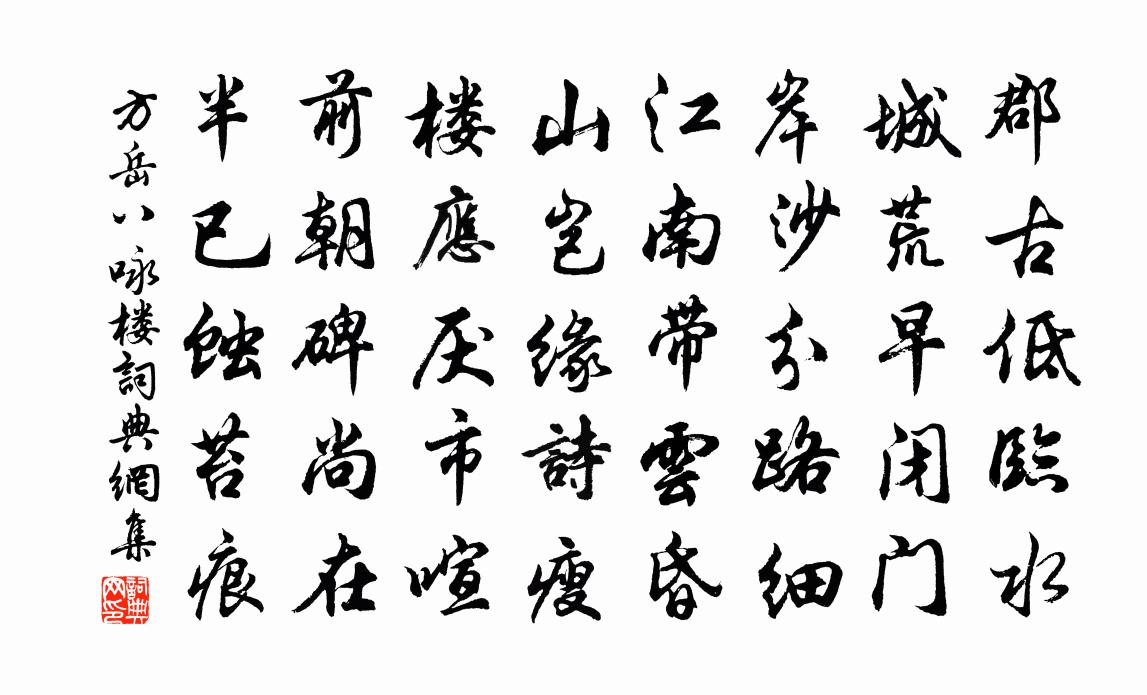 郡古低臨水
城荒早闭门
岸沙分路细
江南带雲昏
山岂缘詩瘦
楼應厌市喧
前朝碑尚在
半已蚀苔痕
方岳八咏楼詞典網集
詞典網印